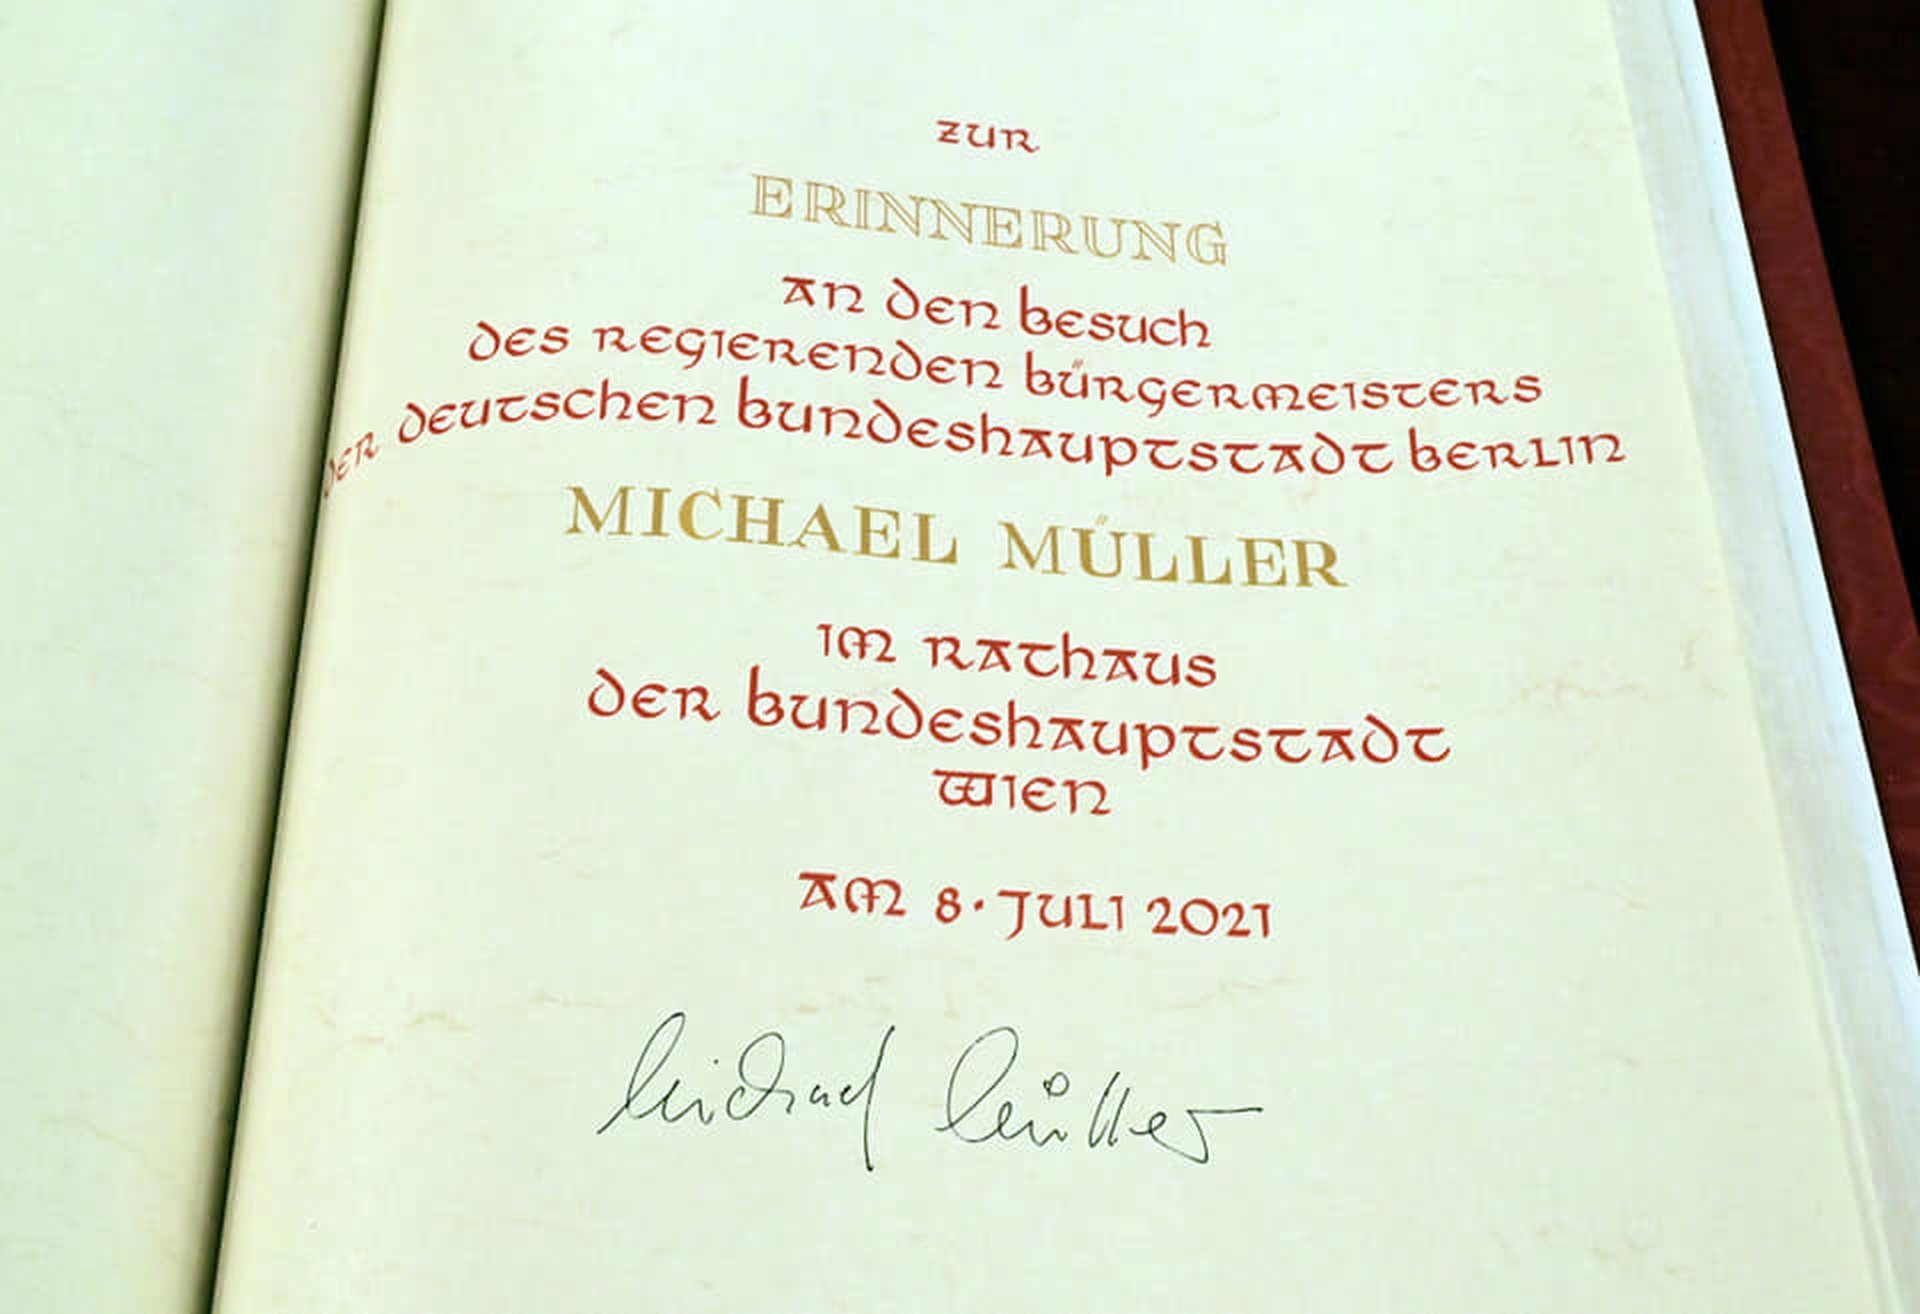 ZUR
ERINNERUNG
AN DEN BESUCH
DES REGIERENDEN BÜRGERMEISTERS
DER DEUTSCHEN BUNDESHAUPTSTADT BERLIN
MICHAEL MÜLLER
IM RATHAUS
DER BUNDESHAUPTSTADT
WIEN
AM 8. JULI 2021
Michael Müller